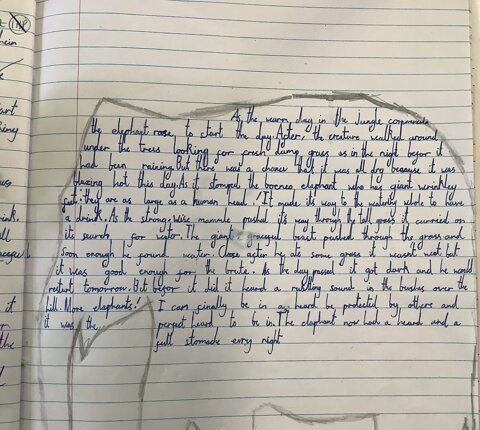 As the warm day in the Jungle commenced
the elephant rose, to start the day. After the creature walked around
under the trees looking for fresh damp grass as in the night befor it
had been raining. But there was a chance that it was all dry because it was
blazing hot this day. As it stomped the borneo elephant who has giant wrinkley
feet: they are as large as a human head! It made its way to the waterby whole to have
a drink. As the strong, wise mammle pushed its way through the tall grass it carried on
its search for water. The giant graceful beast pushed through the grass and
soon enough he found water. Close after he ate some grass it wasn't wet but
it was good enough for the brute. As the day passed it got dark and he would
restart tomorrow. But befor it did it heard a rattling sound in the bushes over the
hill. More elephants! I can finally be in a heard be protected by others and
it was the perfect heard to be in. The elephant now had a heard and a
full stomach evry night